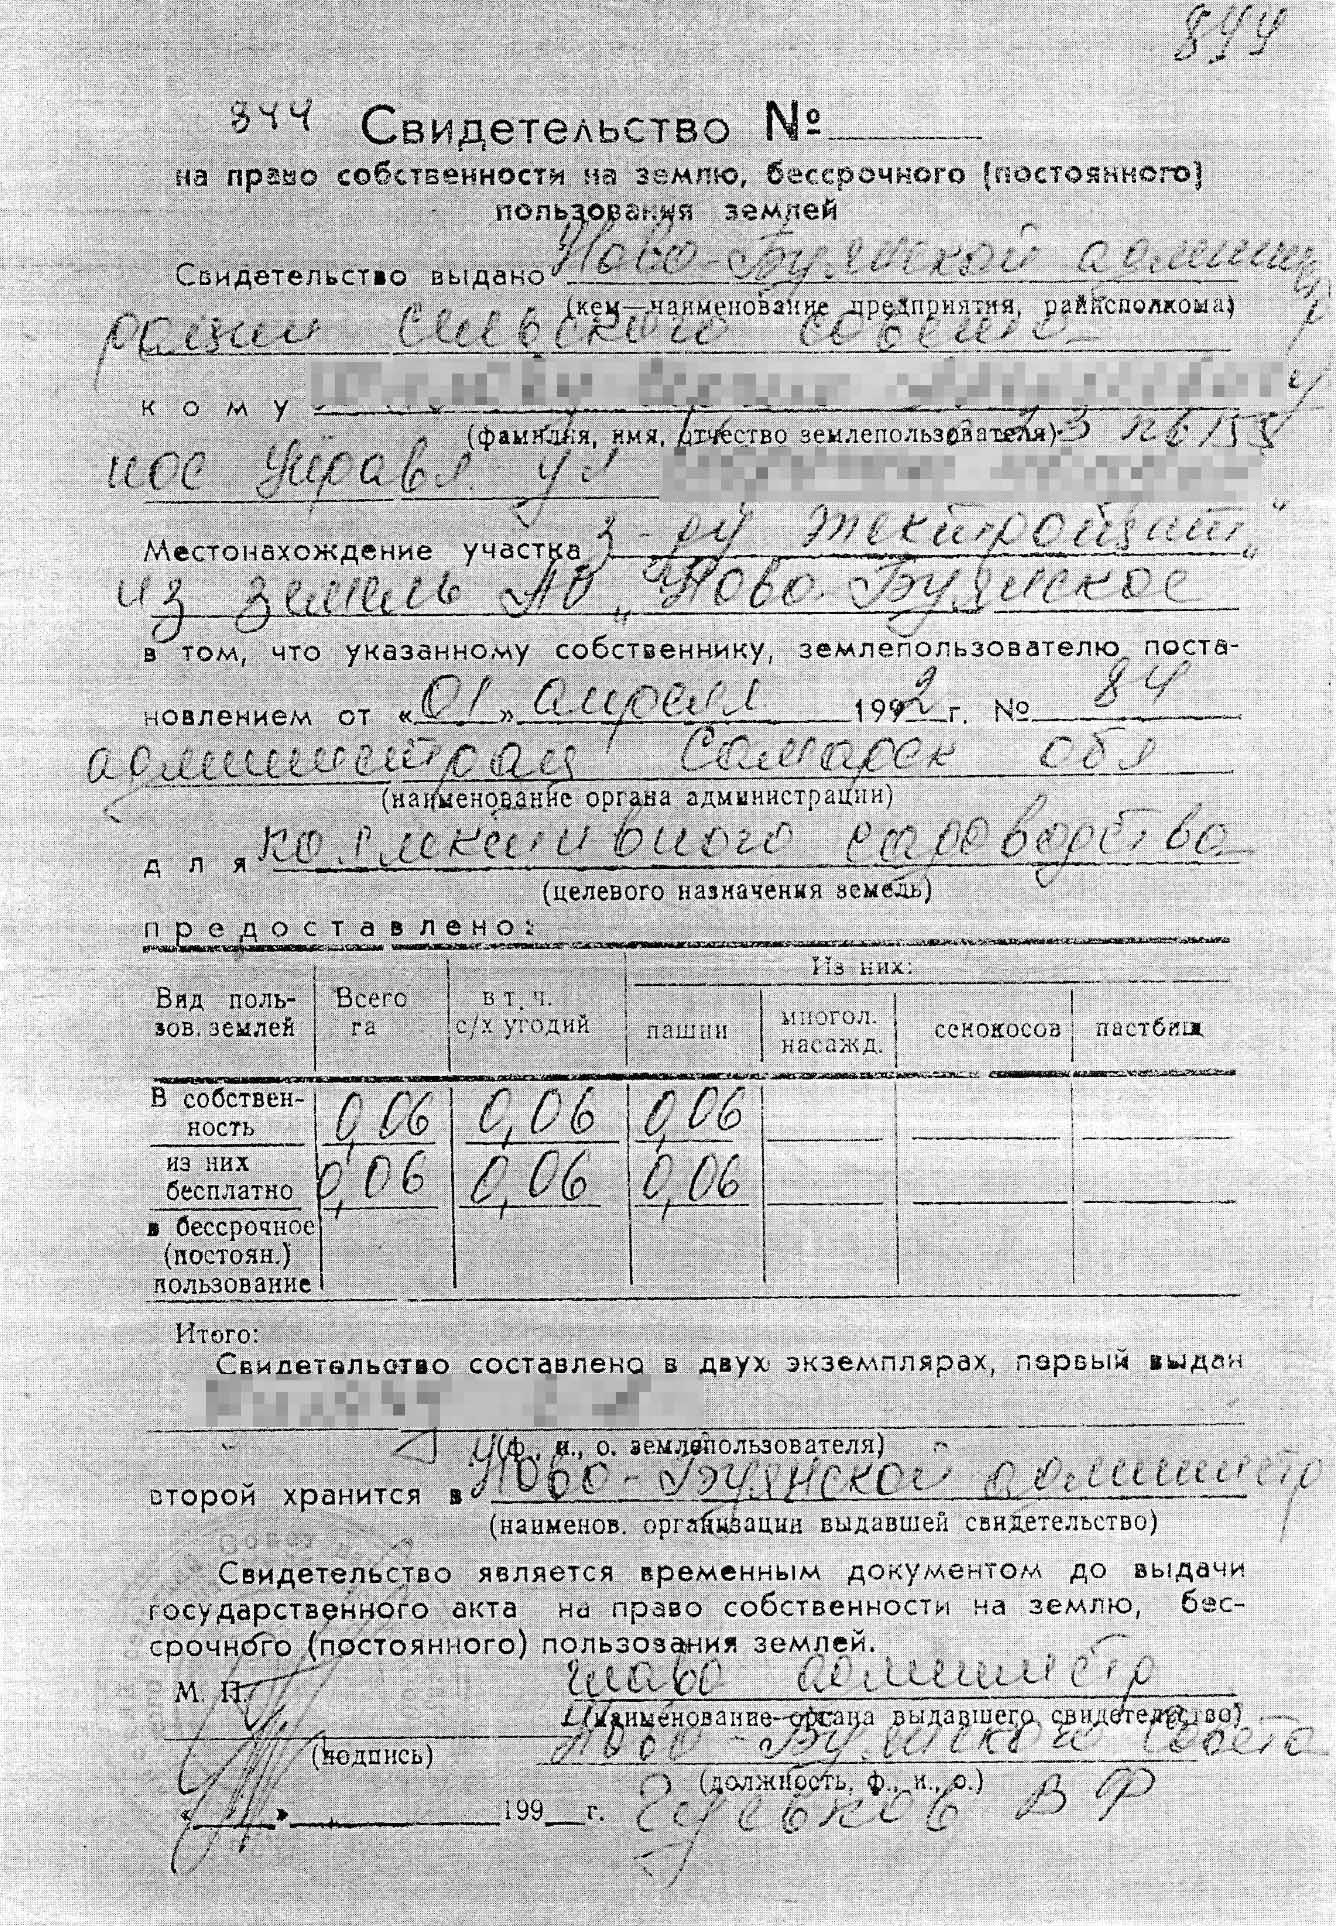 844
844 Свидетельство №
на право собственности на землю, бессрочного (постоянного)
пользования землей
Свидетельство выдано Ново-Буянской админист
(кем—наименование предприятия, райисполкома)
рации сельского совета
кому
(фамилия, имя, отчество землепользователя) 23 кв 155
пос Управл ул
Местонахождение участка з-ду "Электрощит"
из земель АО "Ново-Буянское
в том, что указанному собственнику, землепользователю поста-
новлением от «01» апреля 1992 г. № 84
администрац Самарск обл
(наименование органа администрации)
для коллективного садоводства
(целевого назначения земель)
предоставлено:
Из них:
Вид поль- Всего в т. ч.
зов. землей га с/х угодий пашни многол. насажд. сенокосов пастбищ
В собствен-
ность 0,06 0,06 0,06
из них
бесплатно 0,06 0,06 0,06
в бессрочное
(постоян.)
пользование
Итого:
Свидетельство составлено в двух экземплярах, первый выдан
(ф., и., о. землепользователя)
второй хранится в Ново-Буянской администр
(наименов. организации выдавшей свидетельство)
Свидетельство является временным документом до выдачи
государственного акта на право собственности на землю, бес-
срочного (постоянного) пользования землей.
М. П. глава администр
(наименование органа выдавшего свидетельство)
Ново-Буянского Совета
(подпись) (должность, ф., и., о.)
« » 199 г. В Ф